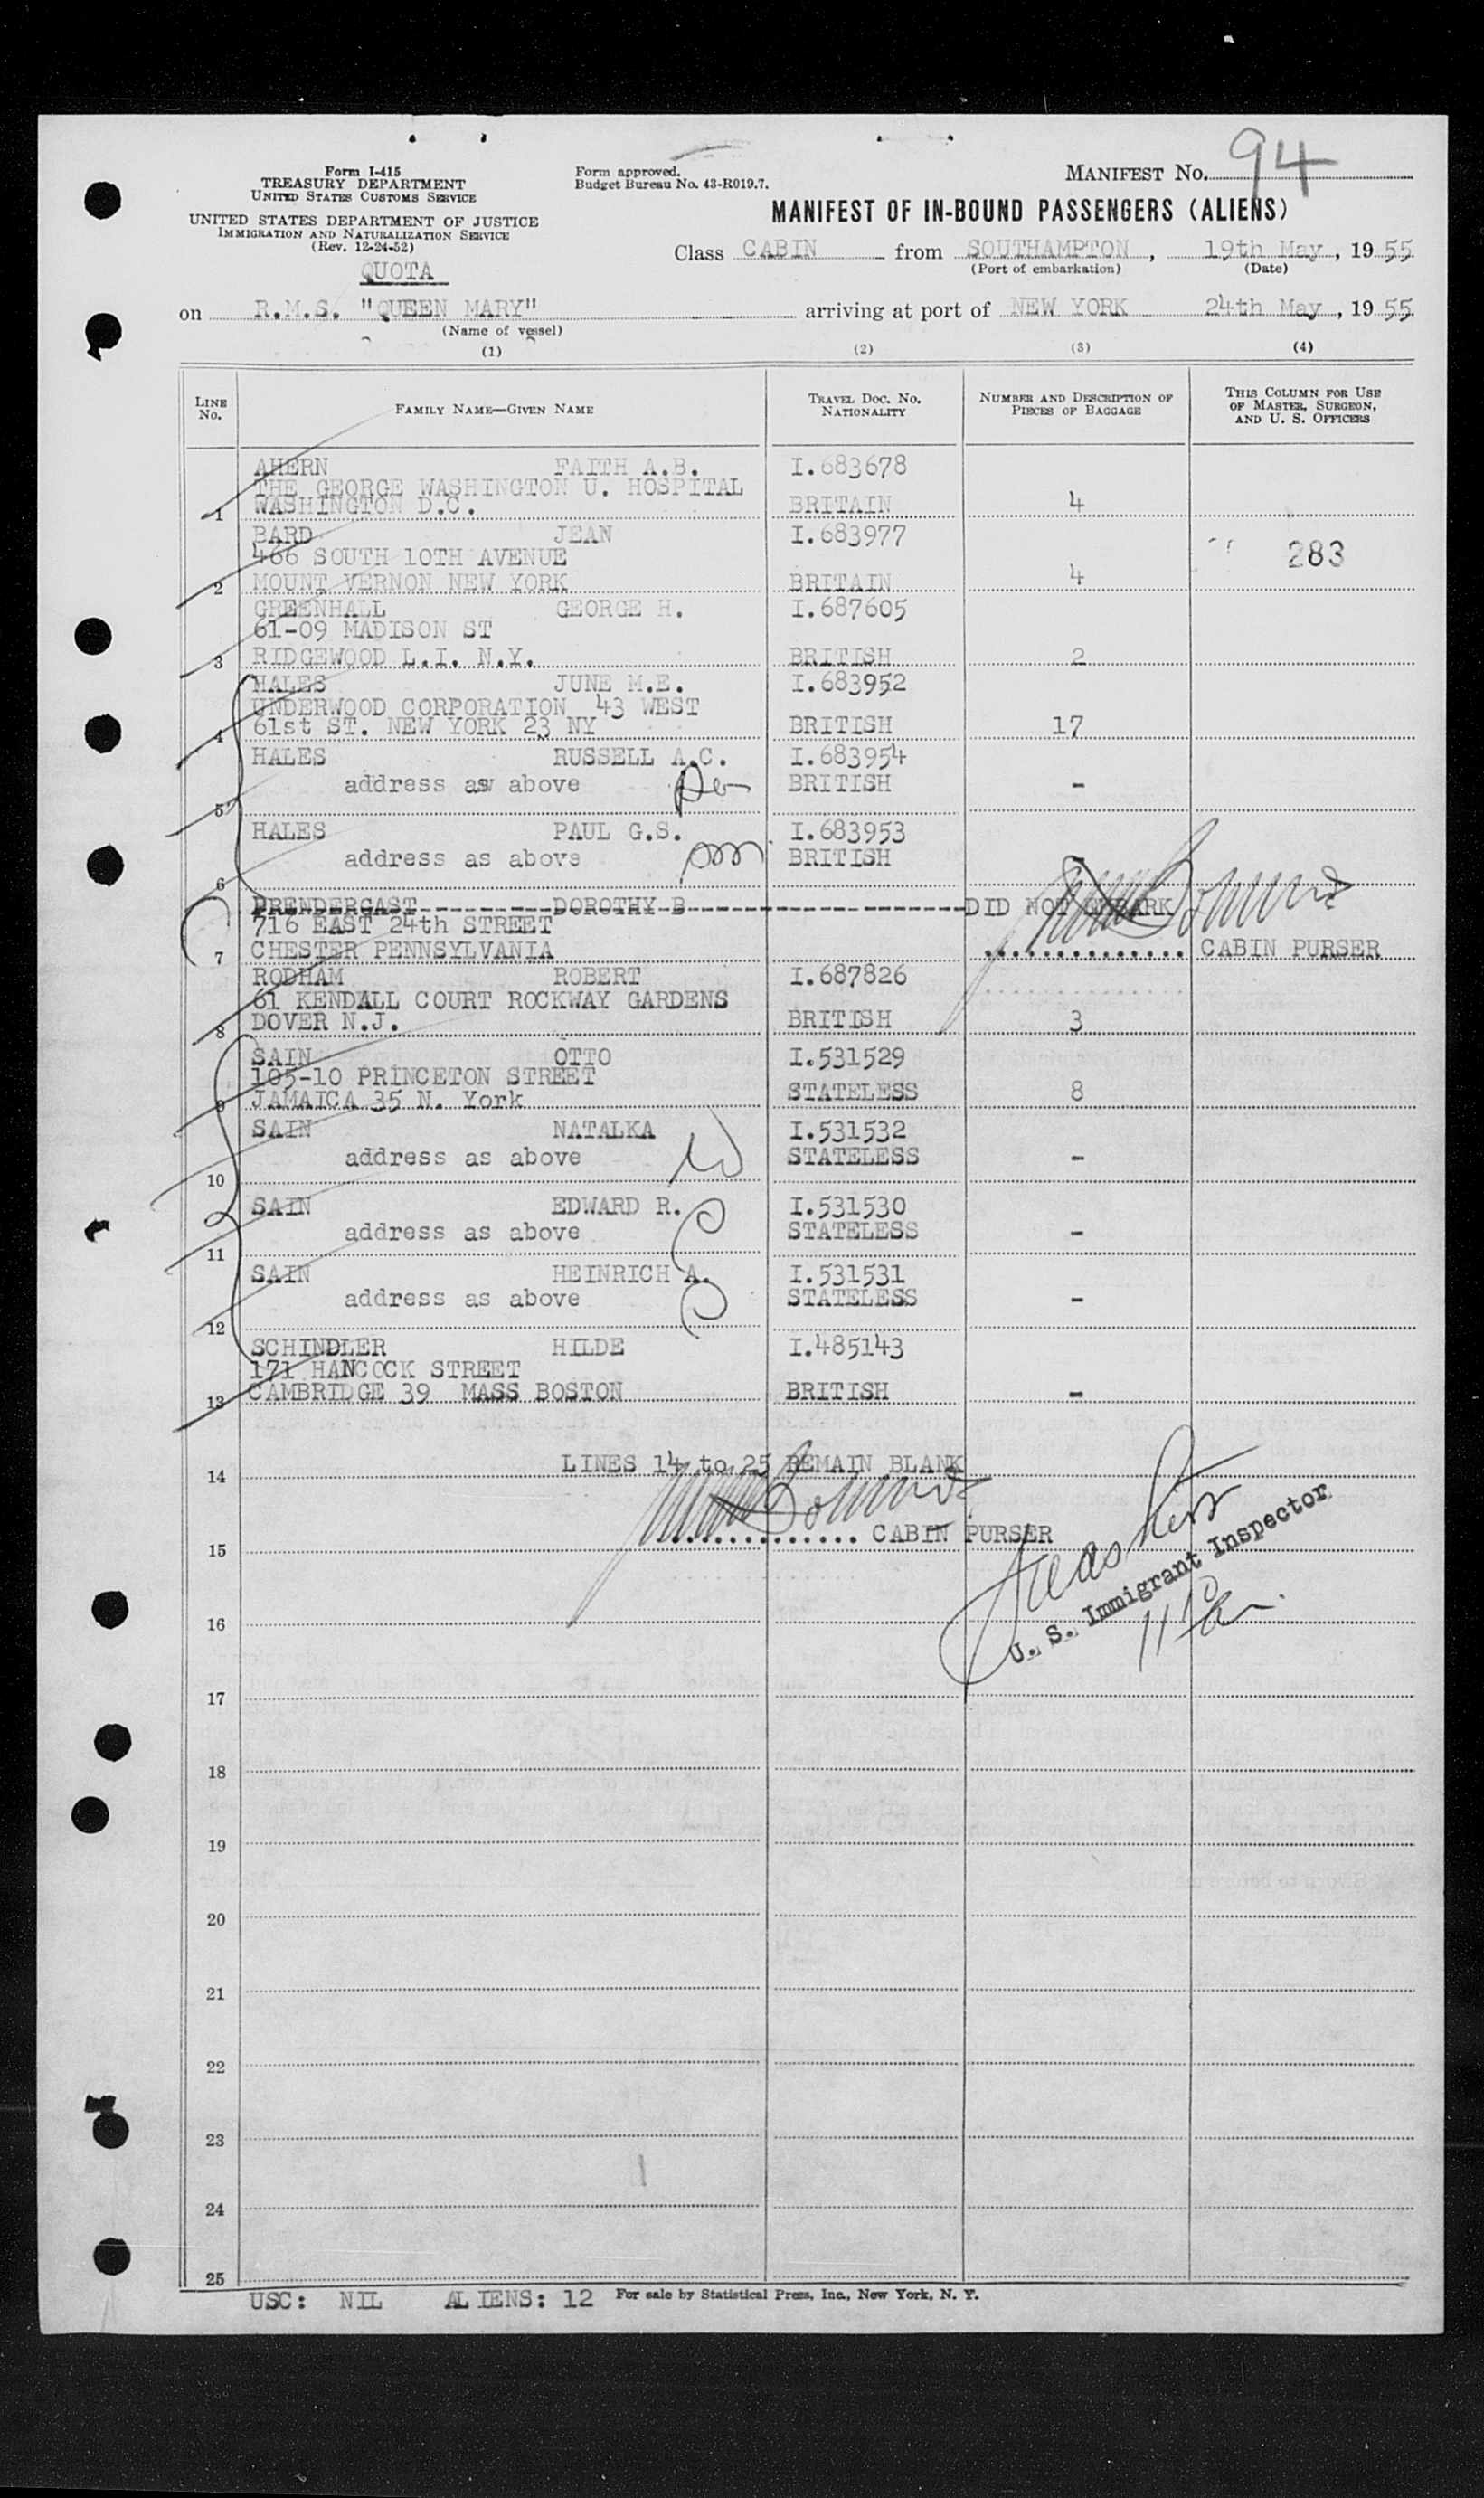 Form I-415
TREASURY DEPARTMENT
UNITED STATES CUSTOMS SERVICE
UNITED STATES DEPARTMENT OF JUSTICE
IMMIGRATION AND NATURALIZATION SERVICE
(Rev. 12-24-52)
QUOTA
Form approved.
Budget Bureau No. 43-R019.7.
MANIFEST No. 94
MANIFEST OF IN-BOUND PASSENGERS (ALIENS)
Class CABIN from SOUTHAMPTON, 19th May, 1955
(Port of embarkation) (Date)
on R.M.S. "QUEEN MARY" arriving at port of NEW YORK 24th May, 1955
(Name of vessel)
(1) (2) (3) (4)
LINE No. FAMILY NAME—GIVEN NAME TRAVEL DOC. NO. NATIONALITY NUMBER AND DESCRIPTION OF PIECES OF BAGGAGE THIS COLUMN FOR USE OF MASTER, SURGEON, AND U. S. OFFICERS
AHERN FAITH A.B. I.683678
THE GEORGE WASHINGTON U. HOSPITAL
1 WASHINGTON D.C. BRITAIN 4
BARD JEAN I.683977
466 SOUTH 10TH AVENUE 283
2 MOUNT VERNON NEW YORK BRITAIN 4
GREENHALL GEORGE H. I.687605
61-09 MADISON ST
3 RIDGEWOOD L.I. N.Y. BRITISH 2
HALES JUNE M.E. I.683952
UNDERWOOD CORPORATION 43 WEST
4 61st ST. NEW YORK 23 NY BRITISH 17
HALES RUSSELL A.C. I.683954
address asw above BRITISH -
5
HALES PAUL G.S. I.683953
address as above BRITISH -
6
PRENDERGAST DOROTHY B DID NOT EMBARK
716 EAST 24th STREET
7 CHESTER PENNSYLVANIA CABIN PURSER
RODHAM ROBERT I.687826
61 KENDALL COURT ROCKWAY GARDENS
8 DOVER N.J. BRITISH 3
SAIN OTTO I.531529
105-10 PRINCETON STREET
9 JAMAICA 35 N. York STATELESS 8
SAIN NATALKA I.531532
address as above STATELESS -
10
SAIN EDWARD R. I.531530
address as above STATELESS -
11
SAIN HEINRICH A. I.531531
address as above STATELESS -
12
SCHINDLER HILDE I.485143
171 HANCOCK STREET
13 CAMBRIDGE 39 MASS BOSTON BRITISH -
LINES 14 to 25 REMAIN BLANK
14
CABIN PURSER
15
U. S. Immigrant Inspector
16
17
18
19
20
21
22
23
24
25
USC: NIL ALIENS: 12 For sale by Statistical Press, Inc., New York, N. Y.